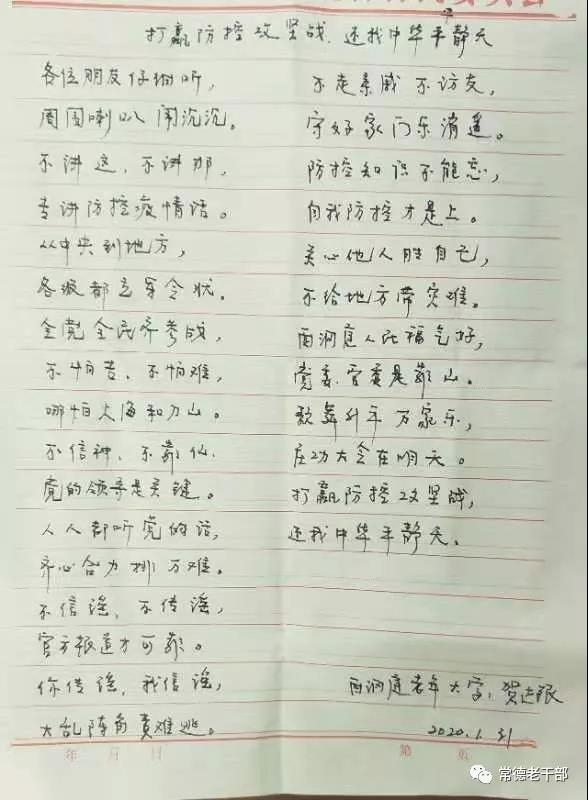 打赢防控攻坚战，还我中华平静天
各位朋友仔细听，
周围喇叭闹沉沉。
不讲这、不讲那，
专讲防控疫情话。
从中央到地方，
各级都立军令状。
全党全民齐参战，
不怕苦、不怕难，
哪怕火海和刀山。
不信神、不靠仙，
党的领导是关键。
人人都听党的话，
齐心合力排万难。
不信谣、不传谣，
官方报道才可靠。
你传谣，我信谣，
大乱阵角责难逃。
不走亲戚不访友，
守好家门乐消遥。
防控知识不能忘，
自我防控才是上。
关心他人胜自己，
不给地方带灾难。
西洞庭人民福气好，
党委、管委是靠山。
歌舞升平万家乐，
庄功大会在明天。
打赢防控攻坚战，
还我中华平静天。
西洞庭老年大学：贺
2020.1.31
年 月 日
第 页
常德老干部